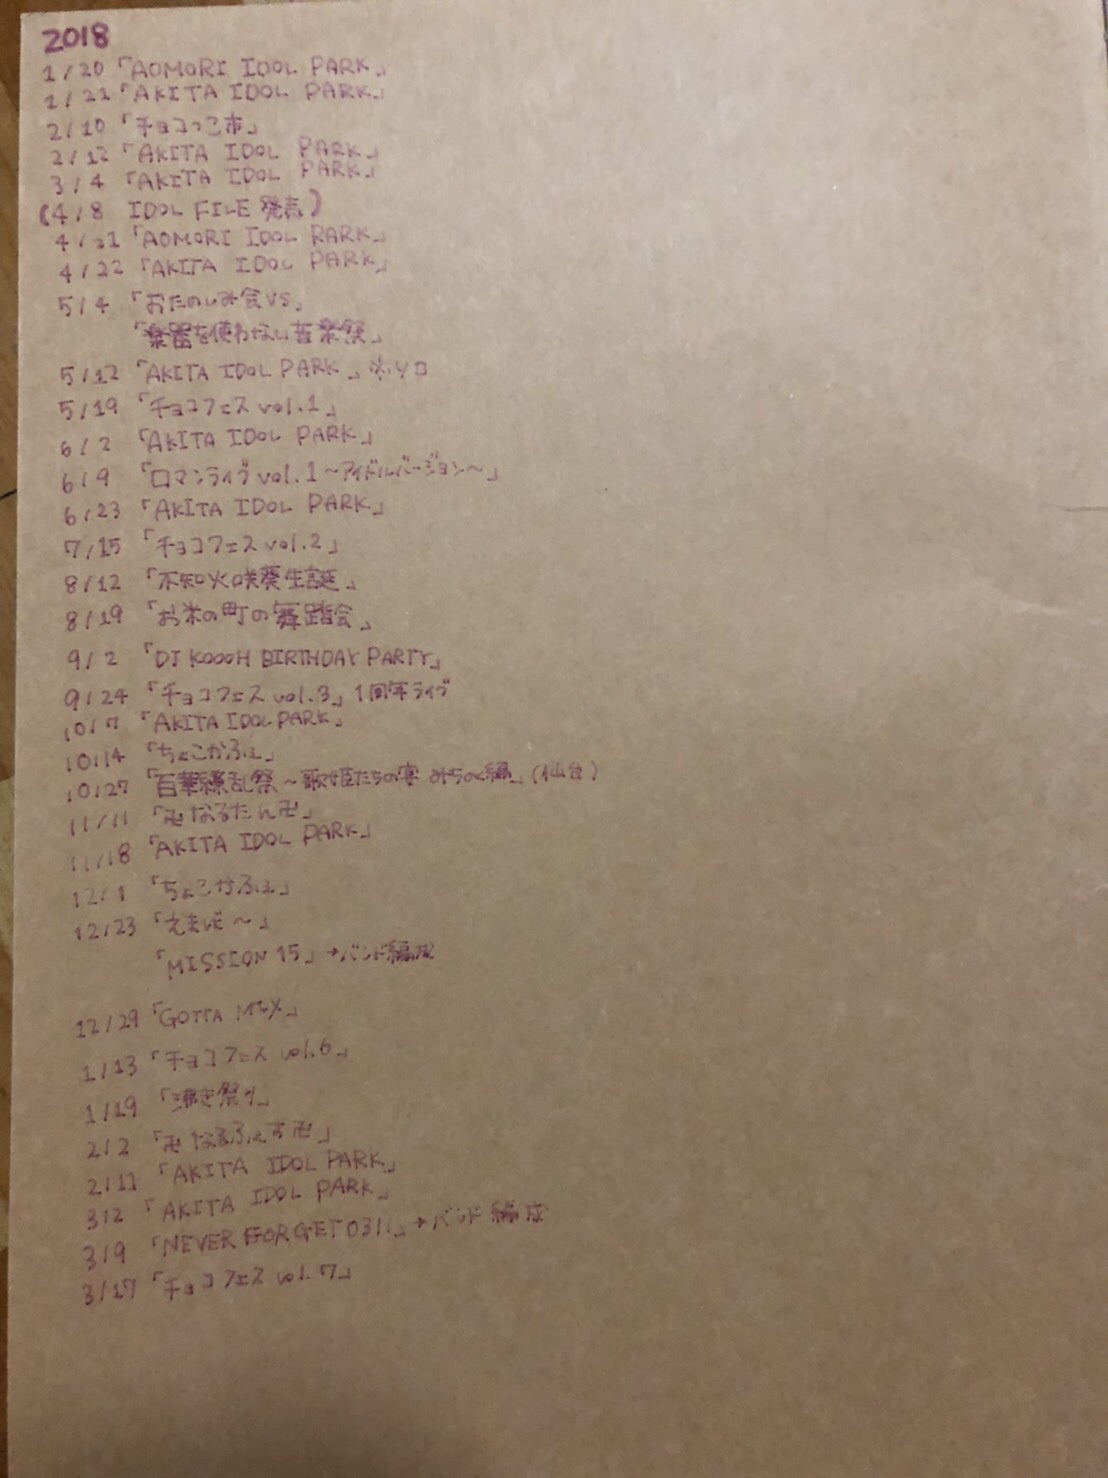 2018
1/20「AOMORI IDOL PARK」
1/21「AKITA IDOL PARK」
2/10「チョコっこ市」
2/12「AKITA IDOL PARK」
3/4「AKITA IDOL PARK」
(4/8 IDOL FILE 発売)
4/21「AOMORI IDOL PARK」
4/22「AKITA IDOL PARK」
5/4「おたのしみ会VS」
「楽器を使わない音楽祭」
5/12「AKITA IDOL PARK」※ソロ
5/19「チョコフェス vol.1」
6/2「AKITA IDOL PARK」
6/9「ロマンライブ vol.1 ～アイドルバージョン～」
6/23「AKITA IDOL PARK」
7/15「チョコフェス vol.2」
8/12「不知火咲葵生誕」
8/19「お米の町の舞踏会」
9/2「DJ KOOOH BIRTHDAY PARTY」
9/24「チョコフェス vol.3」1周年ライブ
10/7「AKITA IDOL PARK」
10/14「ちょこかふぇ」
10/27「百華繚乱祭～歌姫たちの宴 みちのく編」(仙台)
11/11「卍なるたん卍」
11/18「AKITA IDOL PARK」
12/1「ちょこかふぇ」
12/23「えまば～」
「MISSION 15」→バンド編成
12/29「GOTTA MIX」
1/13「チョコフェス vol.6」
1/19「沸き祭り」
2/2「卍なるふぇす卍」
2/11「AKITA IDOL PARK」
3/2「AKITA IDOL PARK」
3/9「NEVER FORGET 0311」→バンド編成
3/17「チョコフェス vol.7」